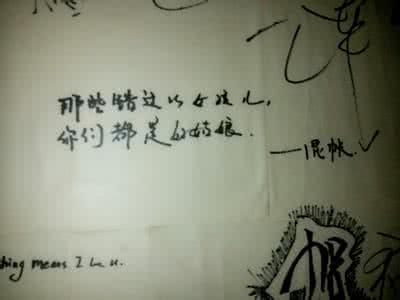 那些错过的女孩儿，
你们都是好姑娘.
——混帐.
hing means I L u.